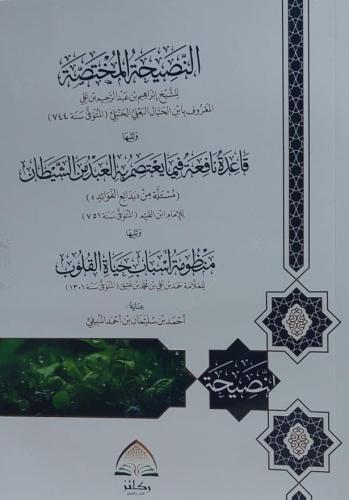 النَّصِيحَةُ المُخْتَصَّة
للشَّيْخ إبْرَاهِيم بن عَبْد الرَّحِيم بن عَلي
المَعْرُوف بِابْن الحَبَّال البَعْلي الحَنْبَلِي (المُتَوَفَّى سَنَة ٧٤٤)
وَيَليهَا
قَاعِدَةٌ نَافِعَةٌ فِيمَا يَعْتَصِمُ بِهِ العَبْدُ مِنَ الشَّيْطَان
(مُسْتَلَّة مِنْ «بَدَائِع الفَوَائِد»)
لِلإمَام ابْن القَيِّم (المُتَوَفَّى سَنَة ٧٥١)
وَيَليهَا
مَنْظُومَةُ أَسْبَابِ حَيَاةِ القُلُوبِ
لِلعَلَّامَة حَمَد بن عَلي بن مُحَمَّد بن عَتِيق (المُتَوَفَّى سَنَة ١٣٠١)
عِنَايَة:
أَحْمَد بن سُلَيْمَان بن أَحْمَد المُنِيفِي
النَّصِيحَة
ركائز